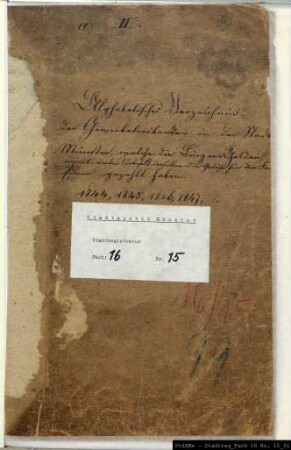 a II.
Alphabetisches Verzeichniß
der Gewerbetreibenden in der Stadt
Münster, welche die Bürger Gelder
gezahlt haben.
1844, 1845, 1846, 1847.
Stadtarchiv Münster
Stadtregistratur
Fach: 16 Nr. 15
16/15
99
StdAMs - Stadtreg_Fach 16 Nr. 15_01